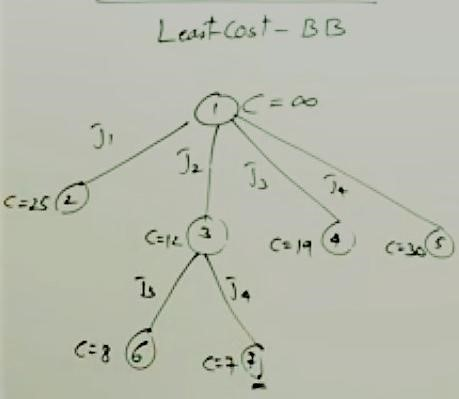 Least-Cost-BB
1 C=∞
J1
J2
J3
J4
C=25 2
C=12 3
C=19 4
C=30 5
J3
J4
C=8 6
C=7 7